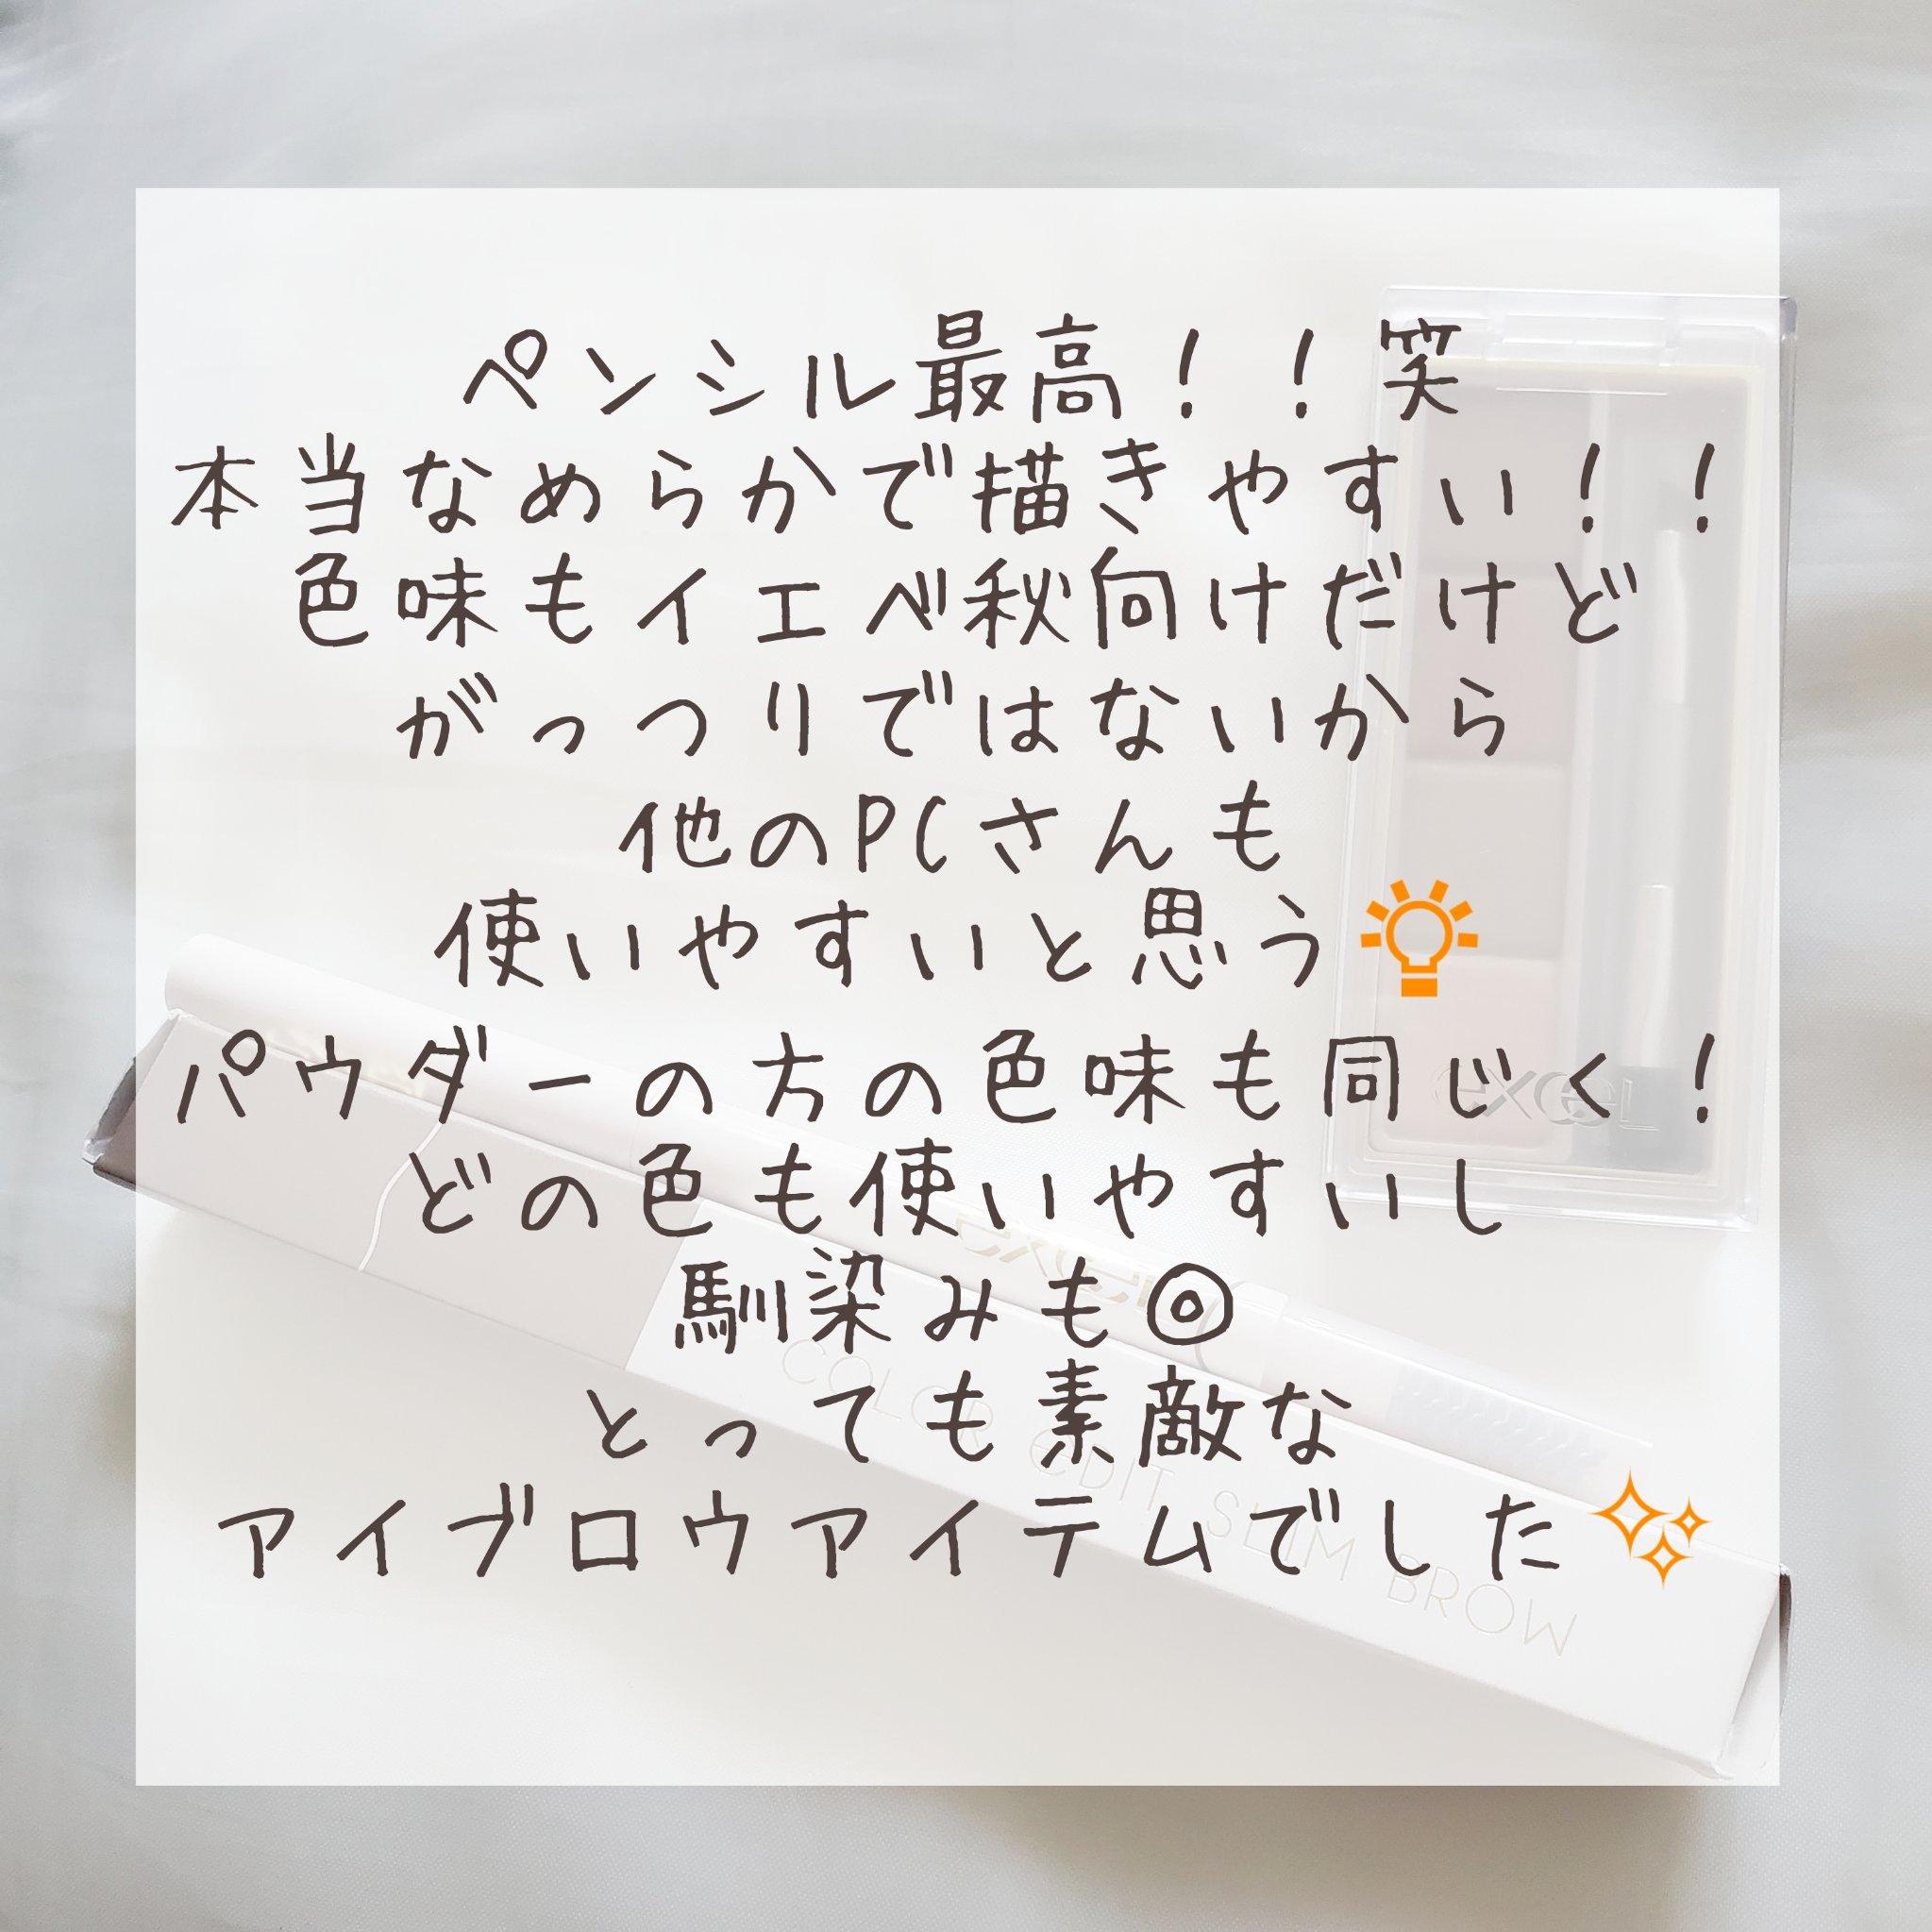 ペンシル最高！！笑
本当なめらかで描きやすい！！
色味もイエベ秋向けだけど
がっつりではないから
他のPCさんも
使いやすいと思う
パウダーの方の色味も同じく！
どの色も使いやすいし
馴染みも◎
とっても素敵な
アイブロウアイテムでした
excel
excel
COLOR EDIT SLIM BROW